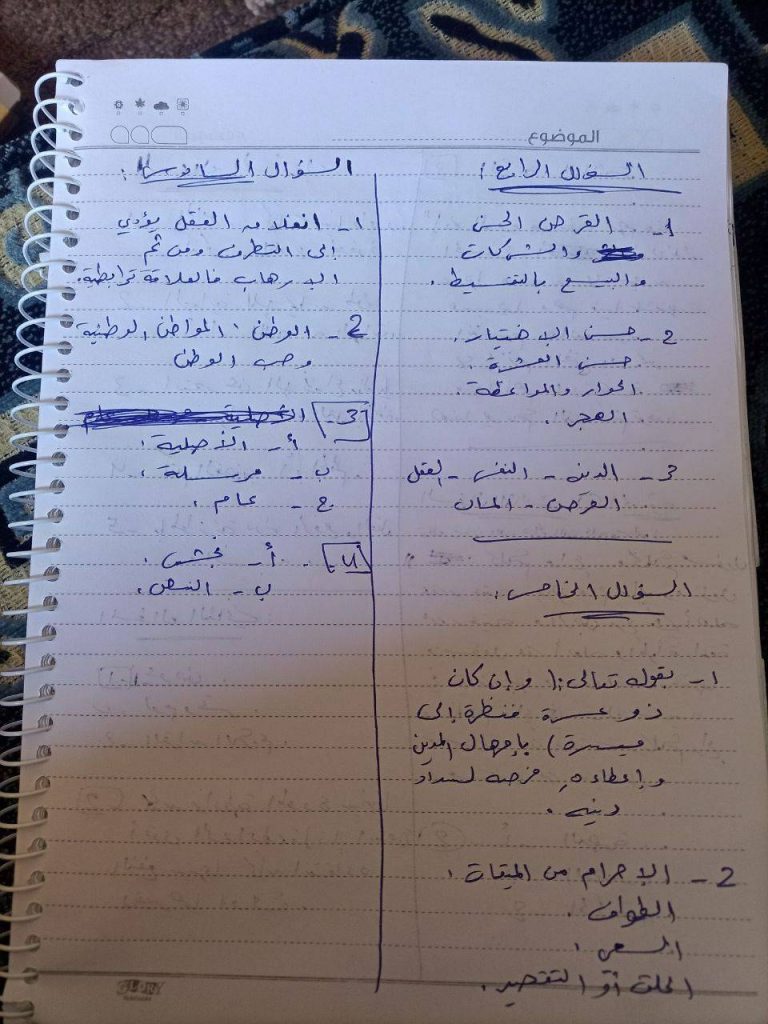 الموضوع
السؤال الرابع:
1- القرض الحسن
والشركات
والبيع بالتقسيط.
2- حسن الاختيار.
حسن العشرة.
الحوار والموعظة.
الهجر.
3- الدين - النفس - العقل
العرض - المال
السؤال الخامس:
1- بقوله تعالى: (وإن كان
ذو عسرة فنظرة إلى
ميسرة) بإمهال المدين
وإعطاءه فرصه لسداد
دينه.
2- الإحرام من الميقات.
الطواف.
السعي.
الحلق أو التقصير.
السؤال السادس:
1- انغلاق العقل يؤدي
إلى التطرف ومن ثم
الإرهاب فالعلاقة ترابطية.
2- الوطن. المواطن الوطنية
وحب الوطن
3-
أ- الأصلية.
ب- مرسلة.
ج- عام.
4- أ- نجش.
ب- النص.
GLORY